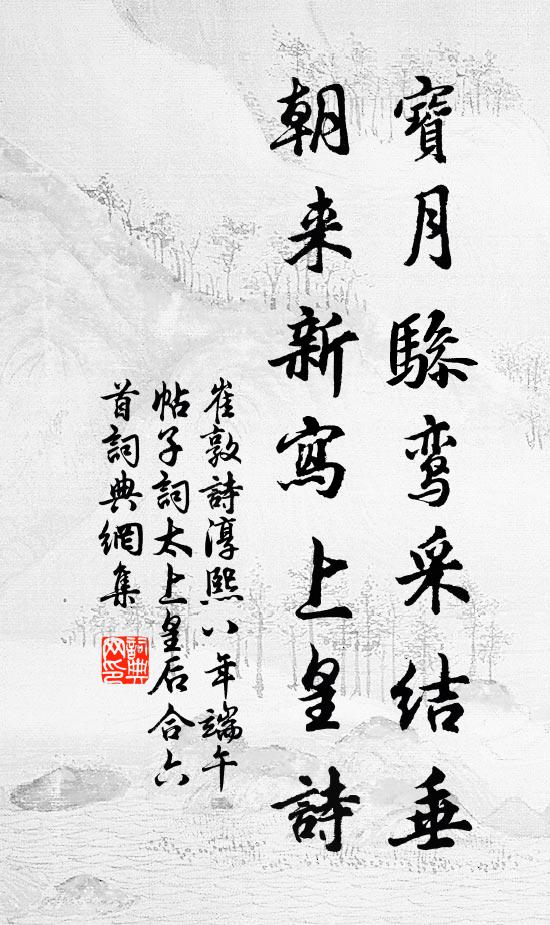 寶月驂鸞采結垂
朝来新寫上皇詩
崔敦詩淳熙八年端午
帖子詞太上皇后合六
首詞典網集
詞典
网印